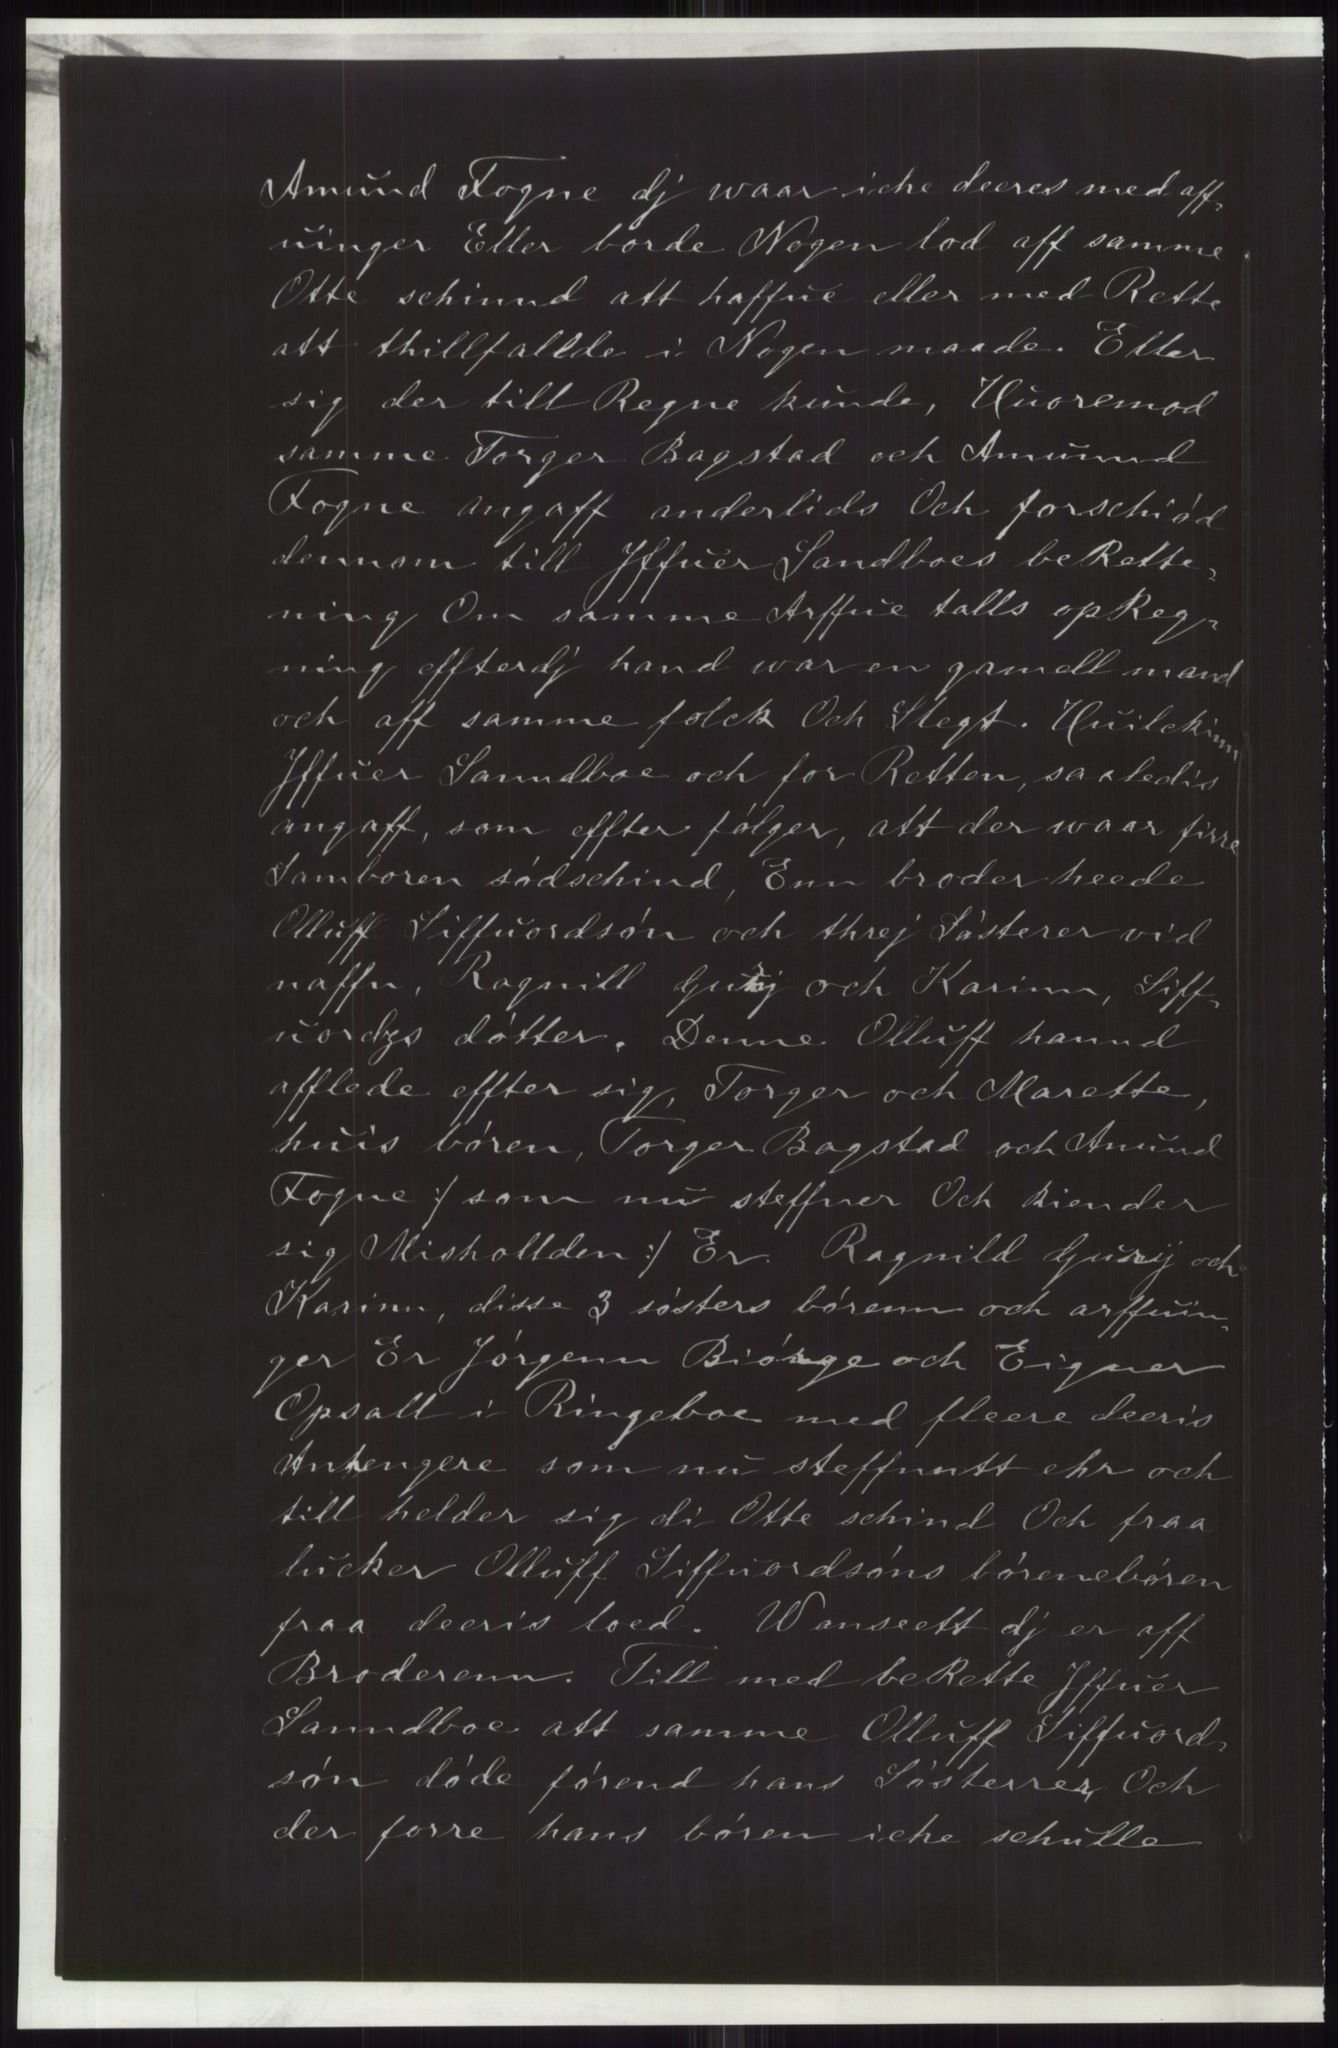 Amund Fogne dj waar iche deeres med aff-
uinger Eller borde Nogen lod aff samme
Otte schinnd att haffue eller med Rette
att thillfallde i Nogen maade. Eller
sig der till Regne kunde, Huoremod
samme Torger Bagstad och Amuund
Fogne angaff anderlids Och forschiød
dennom till Jffuer Sandboes beRette-
ning Om samme Arffue talls opReg-
ning effterdj hand war en gamell mand
och aff samme folck Och Slegt. Huilckinn
Jffuer Sanndboe och for Retten, saaledis
angaff, som effter følger, att der waar firre
Samboren sødschind, Enn broder heede
Olluff Siffuordsøn och threj Søsterer vid
naffn, Ragnill Gurj och Karinn, Siff-
uordys døtter. Denne Olluff hannd
afflede effter sig, Torger och Marette,
huis børen, Torger Bagstad och Amund
Fogne :/ som nu steffner Och kiender
sig Misholden :/ Er. Ragnild Gurij och
Karinn, disse 3 søsters børenn och arffuin-
ger Er Jørgenn Biørge och Eigner
Opsall i Ringeboe med fleere deeris
Anhengere som nu steffnntt ehr och
till helder sig di Otte schind Och fraa
lucker Olluff Siffuordsøns børenebøren
fraa deeris loed. Wanseett dj er aff
Broderenn. Till med beRette Jffuer
Sanndboe att samme Olluff Siffuord-
søn døde førend hans Søsterrer, Och
der forre hans børen iche schulle